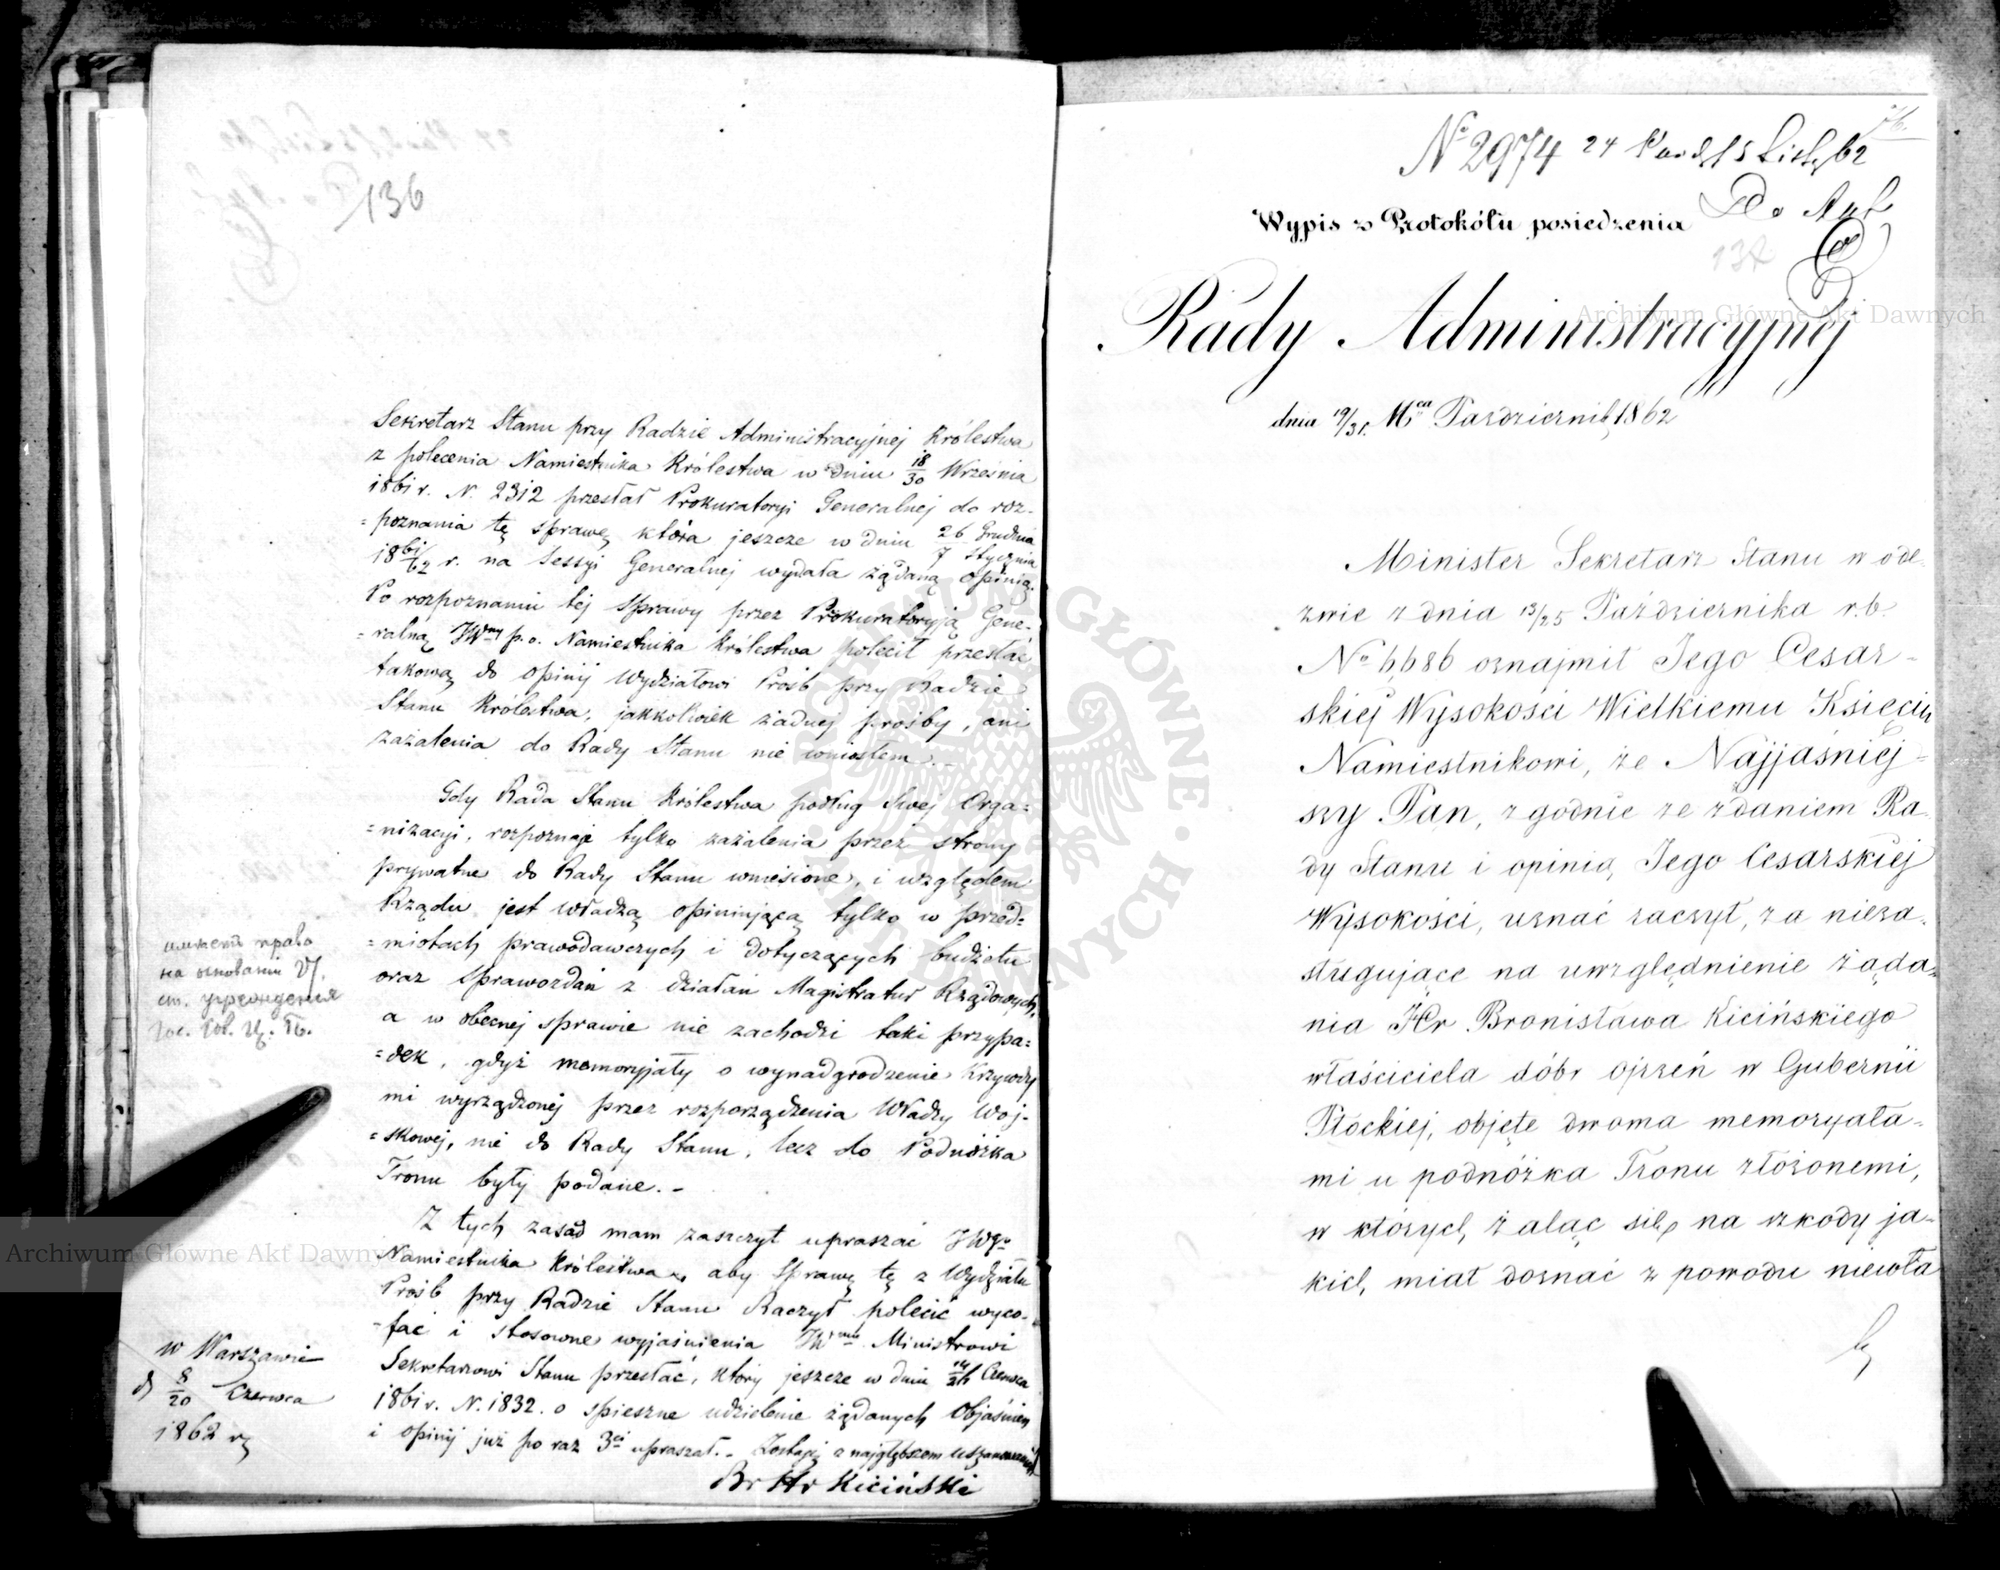 136
Sekretarz Stanu przy Radzie Administracyjnej Królestwa
z polecenia Namiestnika Królestwa w dniu 18/30 Września
1861 r. N. 2312 przesłał Prokuratoryi Generalnej do roz-
=poznania tę sprawę, która jeszcze w dniu 26 Grudnia / 7 Stycznia
1861/62 r. na Sessyi Generalnej wydała żądaną opinią.
Po rozpoznaniu tej sprawy przez Prokuratoryją Gene-
=ralną JWny p. o. Namiestnika Królestwa polecił przesłać
takową do opinij Wydziałowi Prośb przy Radzie
Stanu Królestwa, jakkolwiek żadnej prośby, ani
zażalenia do Rady Stanu nie wniosłem. –
Gdy Rada Stanu Królestwa podług swej Orga=
=nizacyi, rozpoznaje tylko zażalenia przez strony
prywatne do Rady Stanu wniesione, i względem
Rządu, jest władzą opiniującą tylko w przed-
=miotach prawodawczych i dotyczących budżetu
oraz sprawozdań z działań Magistratur Rządowych,
a w obecnej sprawie nie zachodzi taki przypa=
=dek, gdyż memoryjały o wynadgrodzenie Krzywdy
mi wyrządzonej przez rozporządzenia Władzy Woj-
=skowej, nie do Rady Stanu, lecz do Podnóżka
Tronu były podane. –
Z tych zasad mam zaszczyt upraszać JWgo
Namiestnika Królestwa, aby sprawę tę z Wydziału
Prośb przy Radzie Stanu Raczył polecić wyco-
-fać i stosowne wyjaśnienia JWmu Ministrowi
Sekretarzowi Stanu przesłać, który jeszcze w dniu 14/26 Czerwca
1861 r. N. 1832. o spieszne udzielenie żądanych Objaśnień
i opinij już po raz 3ci upraszał. – Zostaję z najgłębszem uszanowaniem
Br Hr Kiciński
имѣетъ право
на основаніи VI.
ст. учрежденія
Гос. Сов. Ц. П.
w Warszawie
d) 8/20 Czerwca
1862 r.
No 2974 24 Paźd/5 List. 62
Do Akt
137
Wypis z Protokółu posiedzenia
Rady Administracyjnej
dnia 19/31. Mca Październik, 1862
Minister Sekretarz Stanu w ode-
zwie z dnia 13/25 Października r. b.
No 6,686 oznajmił Jego Cesar-
skiej Wysokości Wielkiemu Księciu
Namiestnikowi, że Najjaśniej-
szy Pan, zgodnie ze zdaniem Ra-
dy Stanu i opinią Jego Cesarskiej
Wysokości, uznać raczył, za nieza-
sługujące na uwzględnienie żąda-
nia Hr. Bronisława Kicińskiego
właściciela dóbr Ojrzeń w Gubernii
Płockiej, objęte dwoma memoryała-
mi u podnóżka Tronu złożonemi,
w których, żaląc się na szkody ja-
kich, miał doznać z powodu niewła
Archiwum Główne Akt Dawnych
Archiwum Główne Akt Dawnych
ARCHIWUM GŁÓWNE · AKT DAWNYCH ·